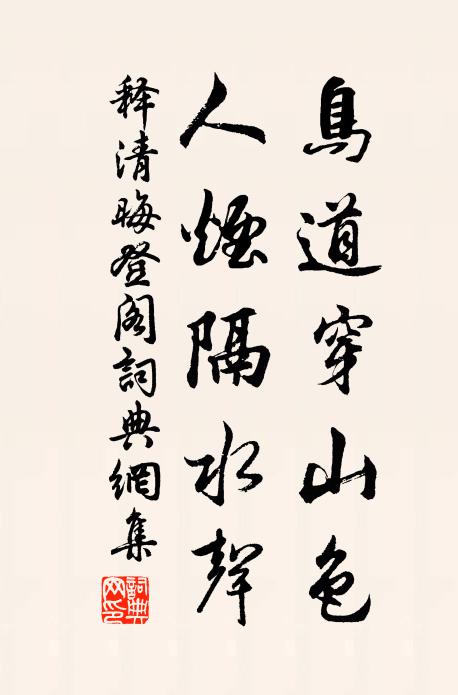 鳥道穿山色
人煙隔水聲
释清晦登阁詞典網集
詞典
网印